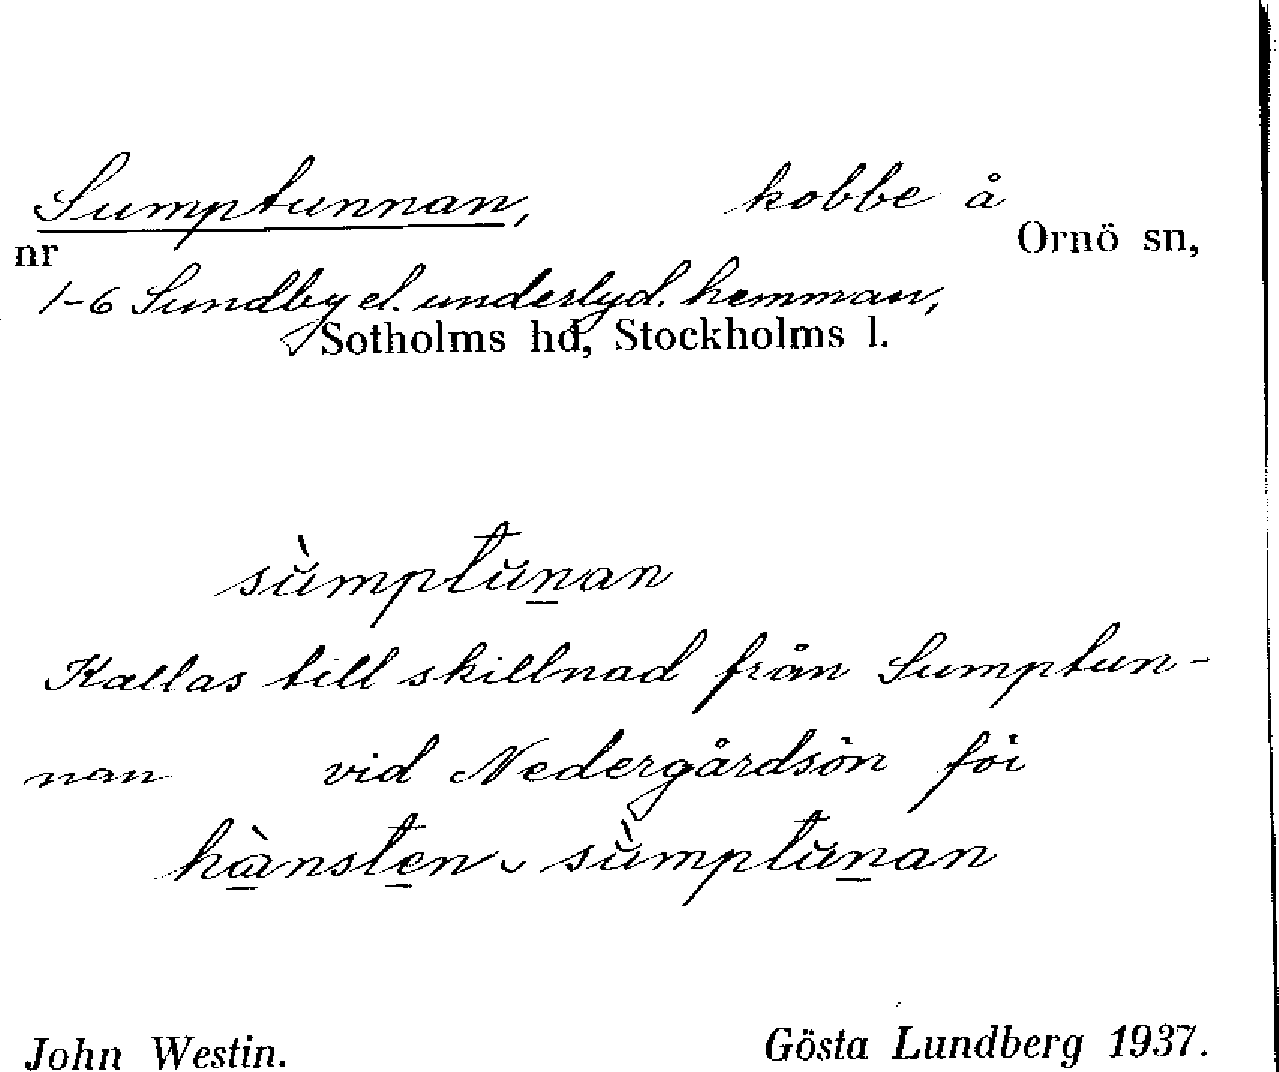 Sumptunnan, kobbe å
nr Ornö sn,
1-6 Sundby el. underlyd. hemman,
Sotholms hd, Stockholms l.
sùmptŭn̲an
Kallas till skillnad från Sumptun-
nan vid Nedergårdsön för
hà̲nste̲n ᴗ sùmptŭn̲an
John Westin. Gösta Lundberg 1937.